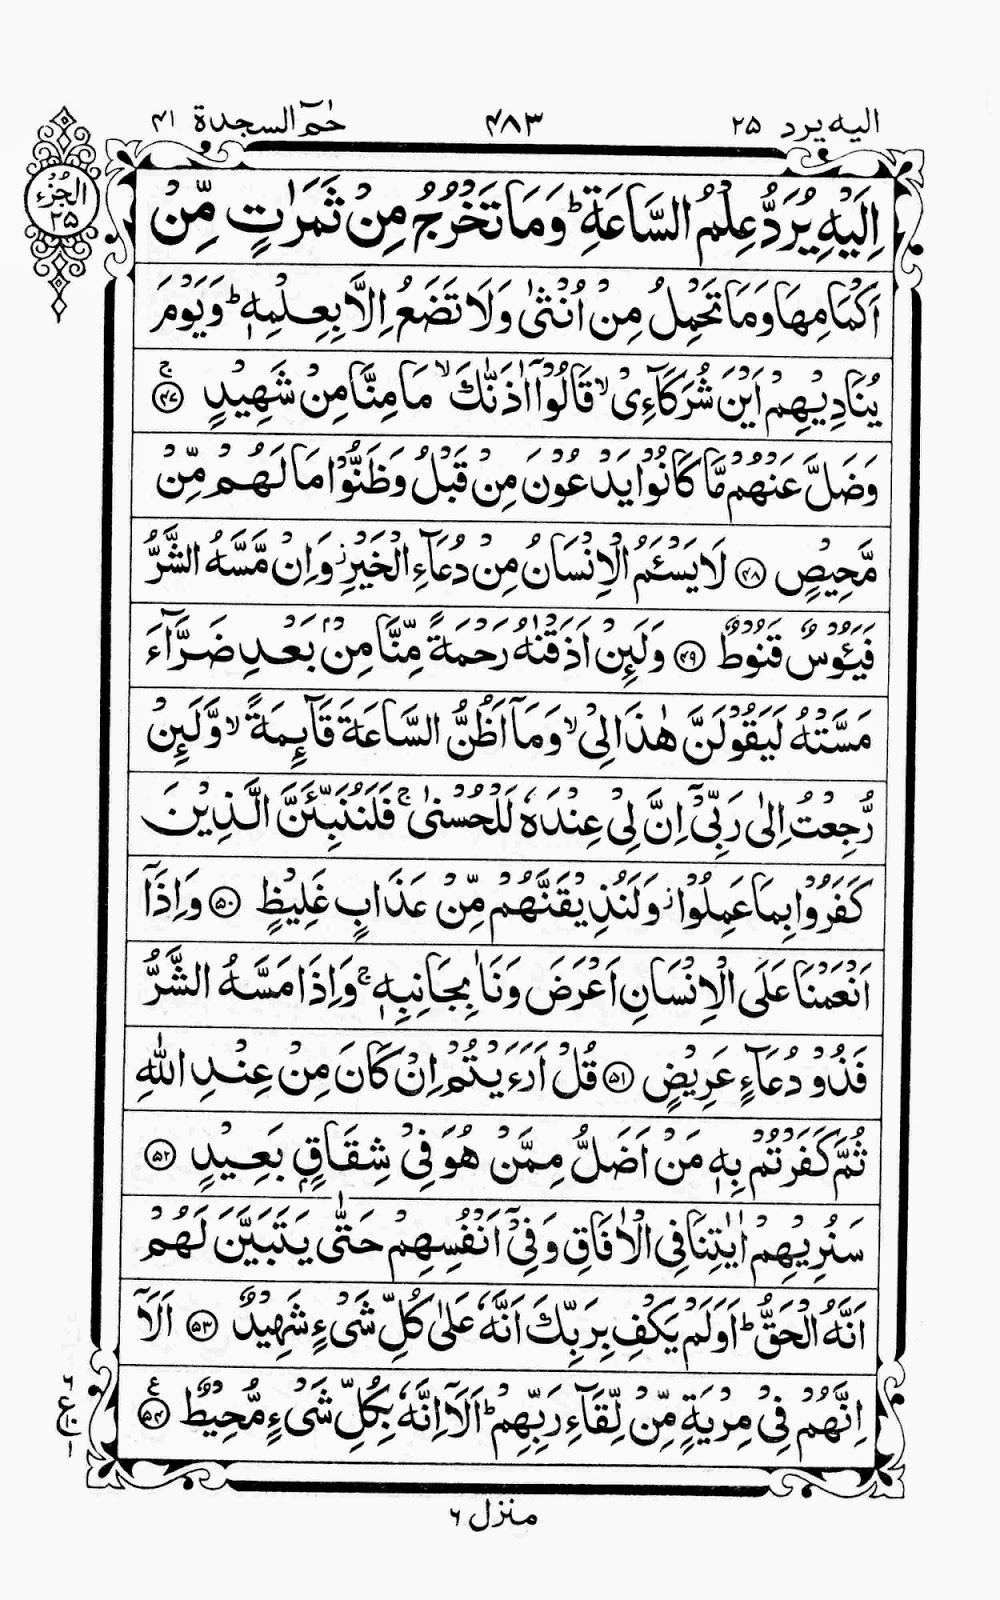 اليه يرد ۲۵
۴۸۳
حٰمٓ السجدة ۴۱
الجُزء
۲۵
اِلَيْهِ يُرَدُّ عِلْمُ السَّاعَةِ ؕ وَمَا تَخْرُجُ مِنْ ثَمَرٰتٍ مِّنْ
اَكْمَامِهَا وَمَا تَحْمِلُ مِنْ اُنْثٰى وَلَا تَضَعُ اِلَّا بِعِلْمِهٖ ؕ وَيَوْمَ
يُنَادِيْهِمْ اَيْنَ شُرَكَآءِىْ ۙ قَالُوْۤا اٰذَنّٰكَ ۙ مَا مِنَّا مِنْ شَهِيْدٍ ۚ ﴿۴۷﴾
وَضَلَّ عَنْهُمْ مَّا كَانُوْا يَدْعُوْنَ مِنْ قَبْلُ وَظَنُّوْا مَا لَهُمْ مِّنْ
مَّحِيْصٍ ﴿۴۸﴾ لَا يَسْـَٔمُ الْاِنْسَانُ مِنْ دُعَآءِ الْخَيْرِ ۫ وَاِنْ مَّسَّهُ الشَّرُّ
فَيَـُٔوْسٌ قَنُوْطٌ ﴿۴۹﴾ وَلَئِنْ اَذَقْنٰهُ رَحْمَةً مِّنَّا مِنْۢ بَعْدِ ضَرَّآءَ
مَسَّتْهُ لَيَقُوْلَنَّ هٰذَا لِىْ ۙ وَمَاۤ اَظُنُّ السَّاعَةَ قَآئِمَةً ۙ وَّلَئِنْ
رُّجِعْتُ اِلٰى رَبِّىْۤ اِنَّ لِىْ عِنْدَهٗ لَلْحُسْنٰى ۚ فَلَنُنَبِّئَنَّ الَّذِيْنَ
كَفَرُوْا بِمَا عَمِلُوْا ۫ وَلَنُذِيْقَنَّهُمْ مِّنْ عَذَابٍ غَلِيْظٍ ﴿۵۰﴾ وَاِذَاۤ
اَنْعَمْنَا عَلَى الْاِنْسَانِ اَعْرَضَ وَنَاٰ بِجَانِبِهٖ ۚ وَاِذَا مَسَّهُ الشَّرُّ
فَذُوْ دُعَآءٍ عَرِيْضٍ ﴿۵۱﴾ قُلْ اَرَءَيْتُمْ اِنْ كَانَ مِنْ عِنْدِ اللّٰهِ
ثُمَّ كَفَرْتُمْ بِهٖ مَنْ اَضَلُّ مِمَّنْ هُوَ فِىْ شِقَاقٍۭ بَعِيْدٍ ﴿۵۲﴾
سَنُرِيْهِمْ اٰيٰتِنَا فِى الْاٰفَاقِ وَفِىْۤ اَنْفُسِهِمْ حَتّٰى يَتَبَيَّنَ لَهُمْ
اَنَّهُ الْحَقُّ ؕ اَوَلَمْ يَكْفِ بِرَبِّكَ اَنَّهٗ عَلٰى كُلِّ شَىْءٍ شَهِيْدٌ ﴿۵۳﴾ اَلَاۤ
اِنَّهُمْ فِىْ مِرْيَةٍ مِّنْ لِّقَآءِ رَبِّهِمْ ؕ اَلَاۤ اِنَّهٗ بِكُلِّ شَىْءٍ مُّحِيْطٌ ﴿۵۴﴾
منزل ۶